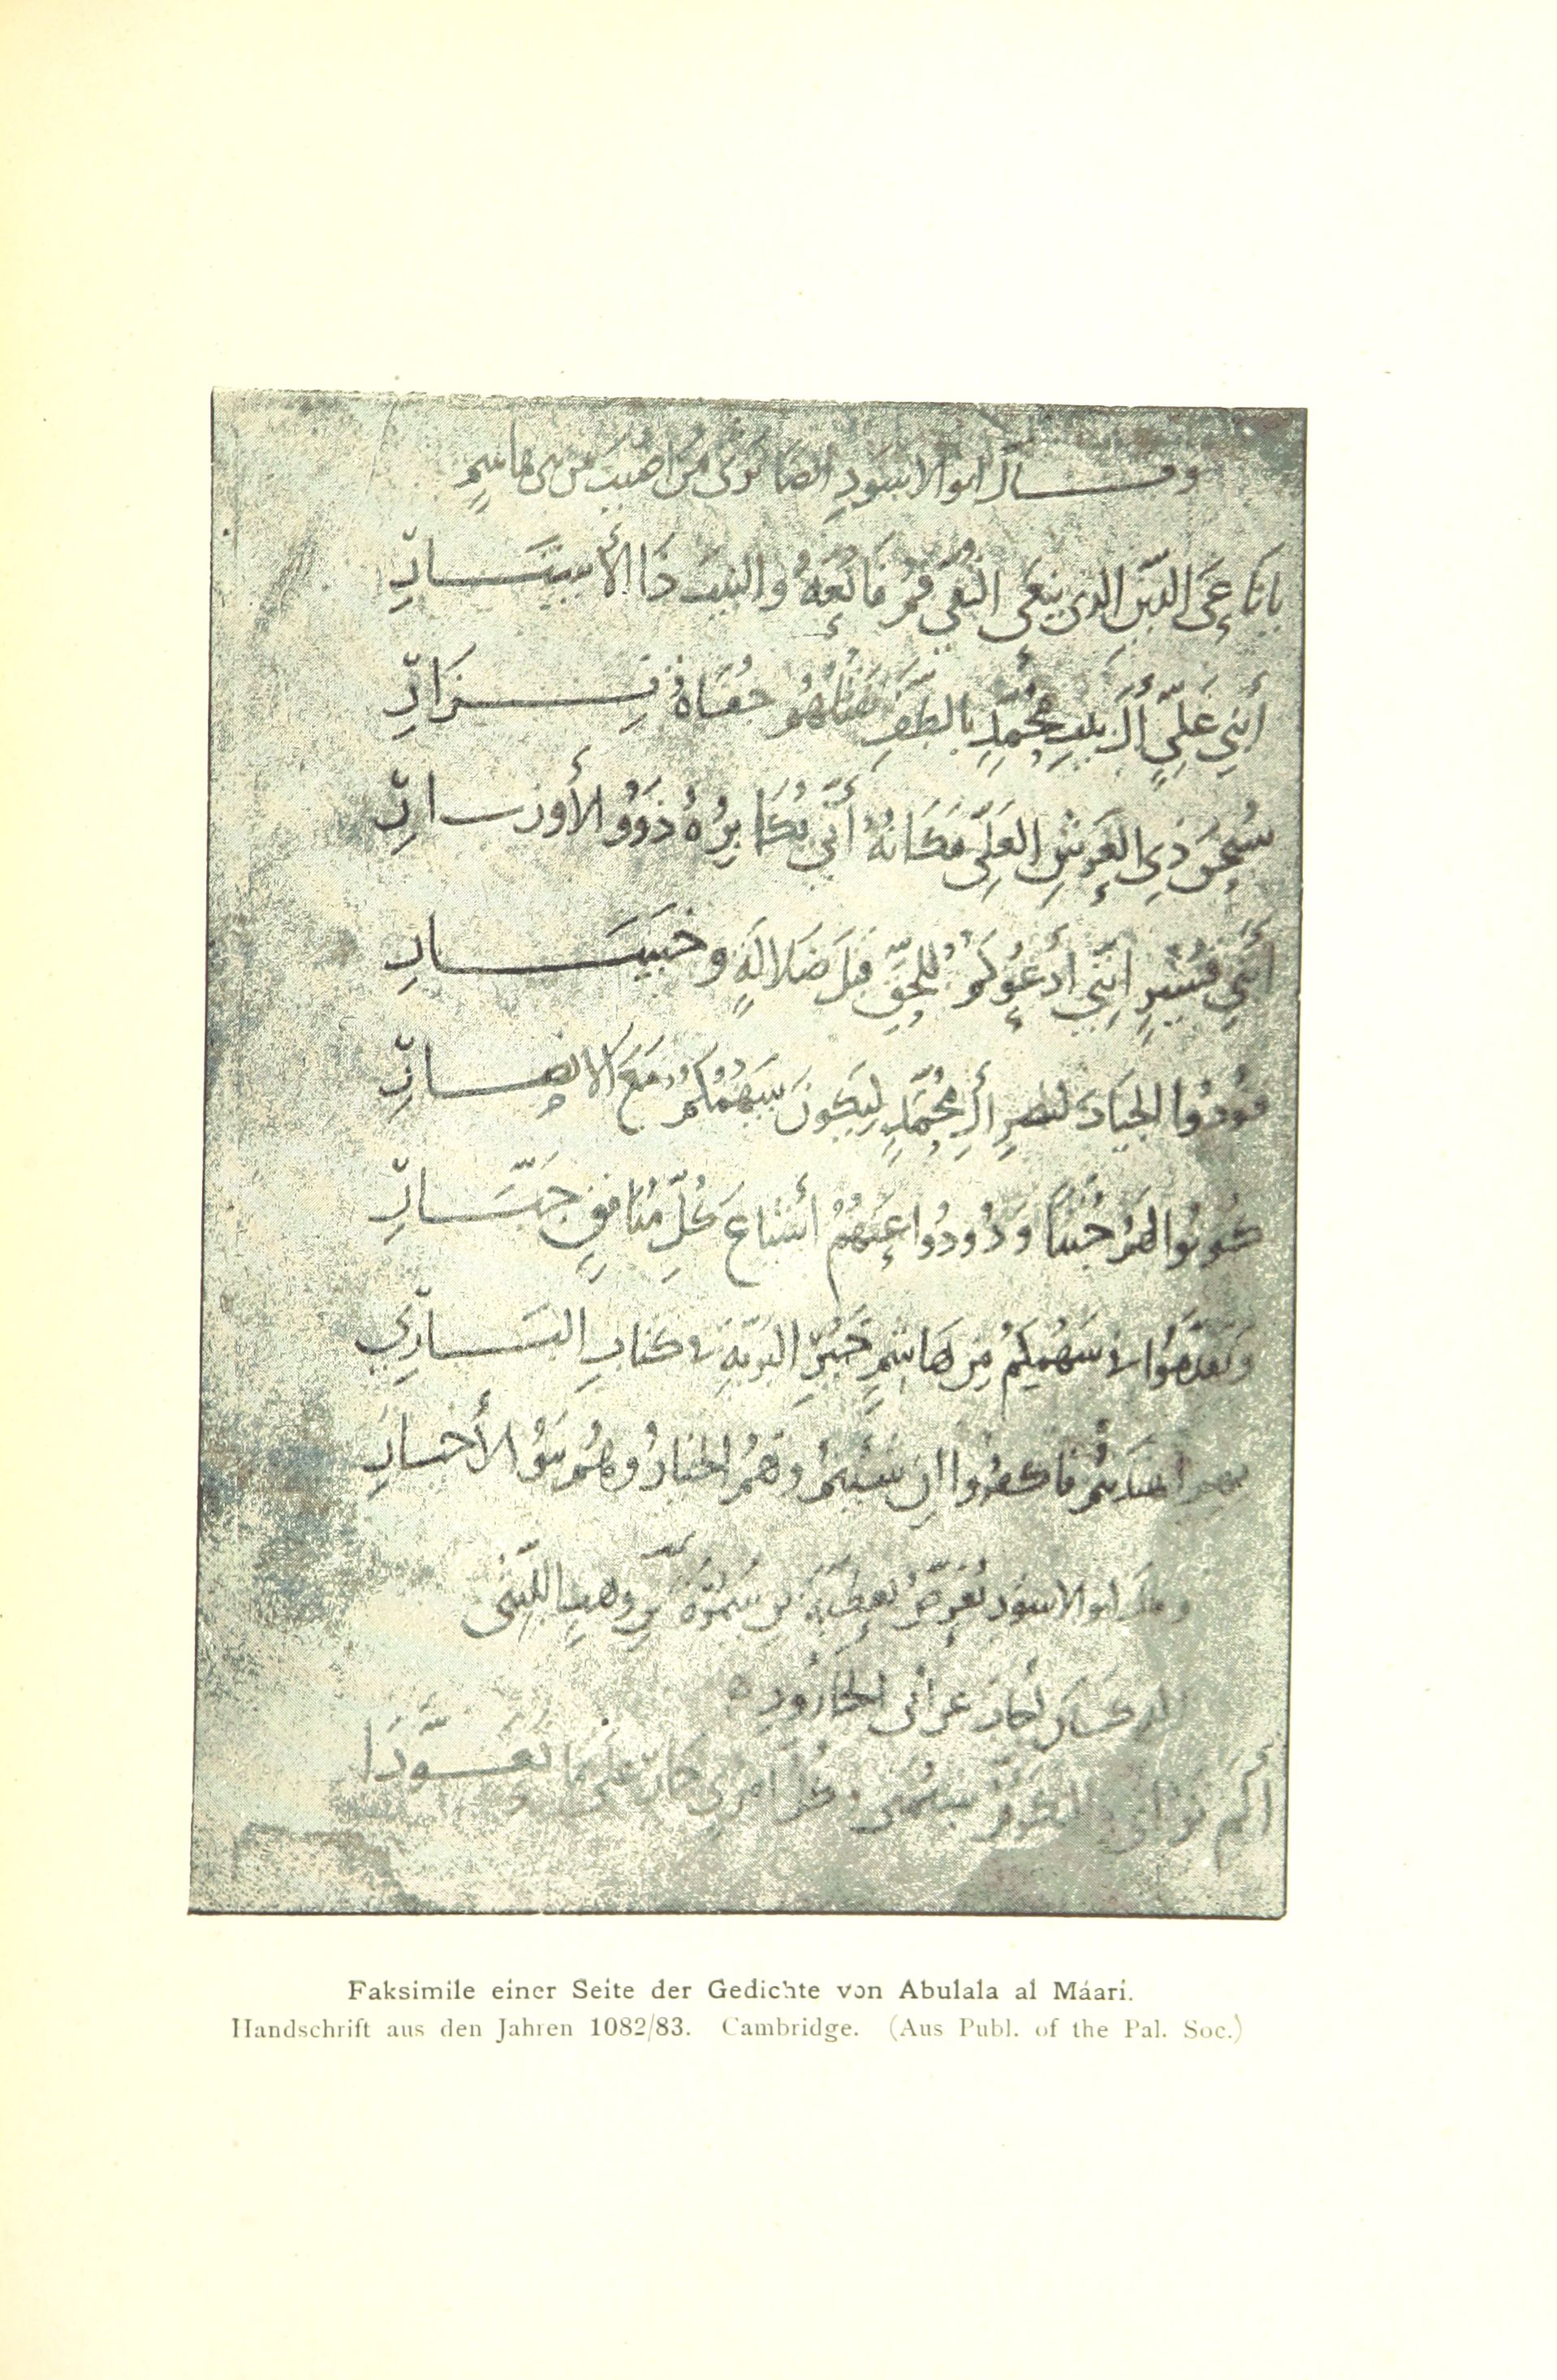 وقال ابو الاسود ايضا يرثي من اصيب من بني هاشم
يا ناعي الدين الذي ينعى التقى قم فانعه والبيت ذا الأستار
أبني علي آل بيت محمد بالطف تقتلهم جفاة نزار
سبحن ذي العرش العلي مكانه أنى يكابره ذوو الأوزار
أبني قشير انني أدعوكم للحق قبل ضلالة وخسار
قودوا الجياد لنصر آل محمد ليكون سهمكم مع الانصار
كونوا لهم جننا وذودوا عنهم أشياع كل منافق جبار
وتقدموا في سهمكم من هاشم خير البرية في كتاب الباري
بهم اهتديتم فاكفروا ان شئتم وهم الخيار وهم بنو الأخيار
ابو الاسود يعرض بن سمرة بن وهب الليثي
عن ابي الجارود
ألم تر اني وكل امرئ على ما تعودا
Faksimile einer Seite der Gedichte von Abulala al Máari.
Handschrift aus den Jahren 1082/83. Cambridge. (Aus Publ. of the Pal. Soc.)